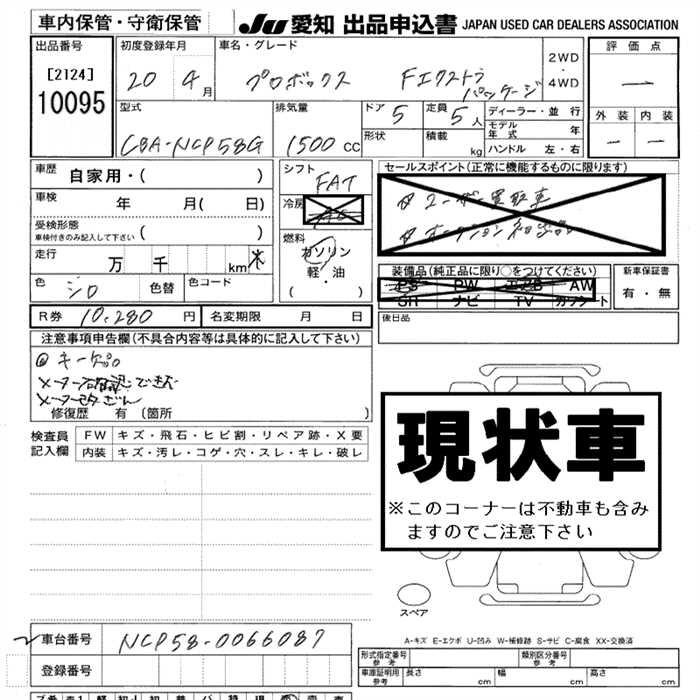 車内保管・守衛保管
JU 愛知 出品申込書 JAPAN USED CAR DEALERS ASSOCIATION
出品番号
[2124]
10095
初度登録年月
20 4月
車名・グレード
プロボックス Fエクストラパッケージ
2WD
・
4WD
評価点
一
外装 内装
一 一
型式
CBA-NCP58G
排気量
1500 cc
ドア 5
形状
定員 5人
積載 kg
ディーラー・並行
モデル年式 年
ハンドル 左・右
車歴
自家用・( )
車検
年 月( 日)
受検形態
車検付きのみ記入して下さい ( )
走行
万 千 km
色
シロ
色替
色コード
シフト
FAT
冷房
燃料
ガソリン
軽・油
( ・ )
セールスポイント(正常に機能するものに限ります)
装備品(純正品に限り○をつけてください)
PS PW エアB AW
SR ナビ TV カワシート
新車保証書
有・無
後日品
R券 10,280 円
名変期限 月 日
注意事項申告欄(不具合内容等は具体的に記入して下さい)
メーター改ざん
修復歴 有 (箇所 )
検査員記入欄
FW キズ・飛石・ヒビ割・リペア跡・X要
内装 キズ・汚レ・コゲ・穴・スレ・キレ・破レ
現状車
※このコーナーは不動車も含み
ますのでご注意下さい
スペア
車台番号 NCP58-0066087
登録番号
A-キズ E-エクボ U-凹み W-補修跡 S-サビ C-腐食 XX-交換済
形式指定番号 参考
類別区分番号 参考
車庫証明用 参考
長さ cm
幅 cm
高さ cm